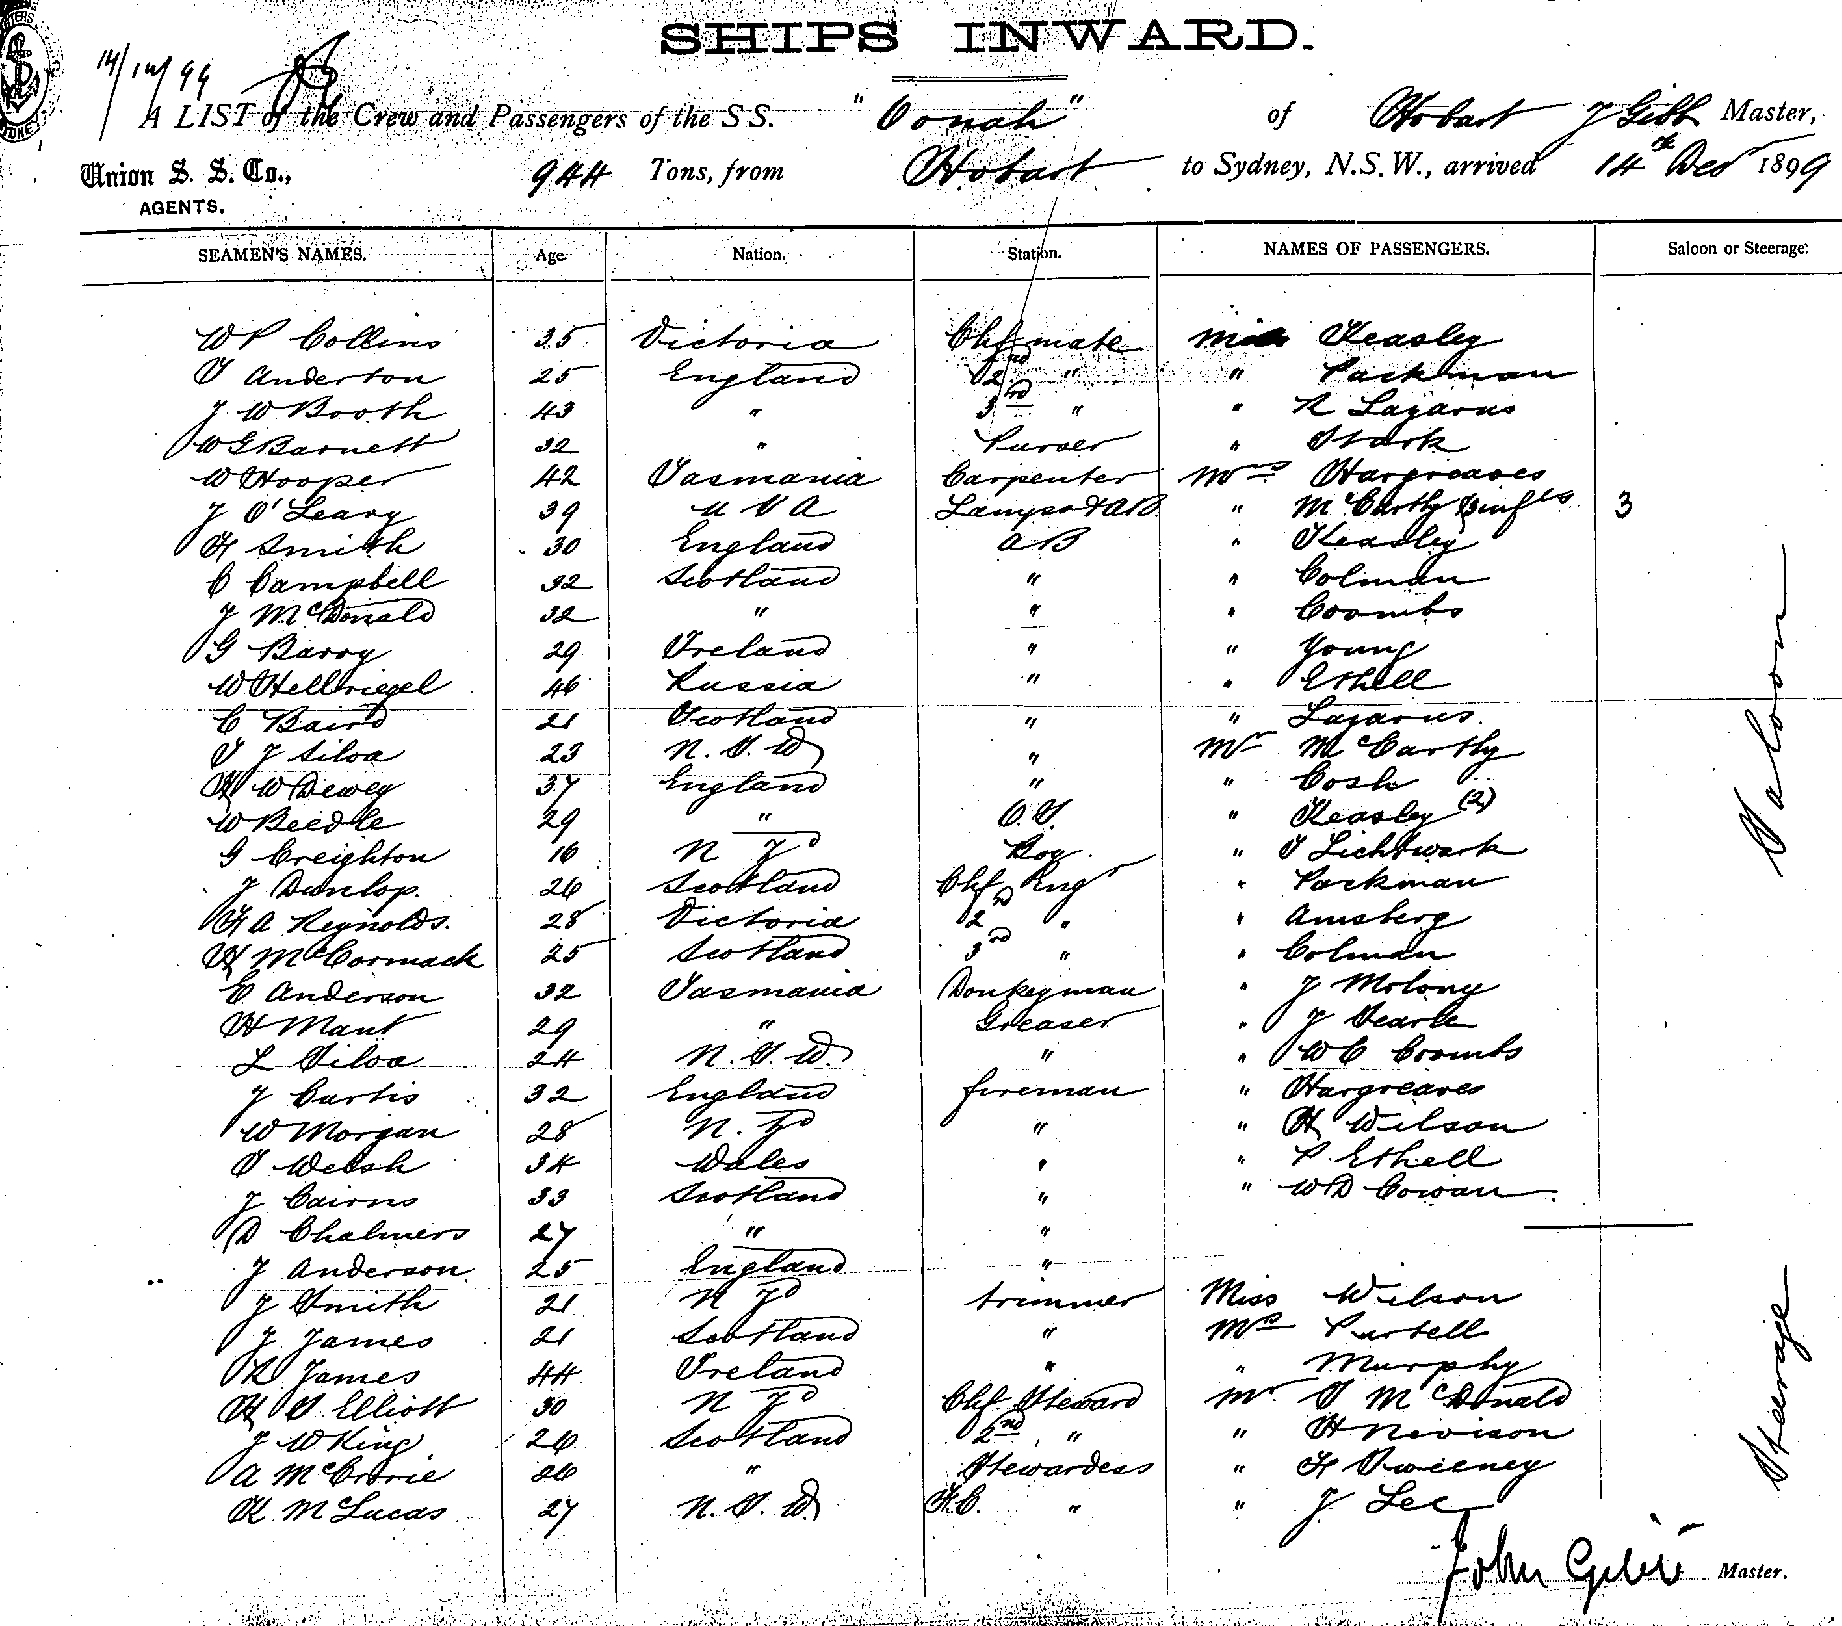 SHIPS INWARD.
14/12/99
A LIST of the Crew and Passengers of the S.S. "Oonah" of Hobart J Gibb Master,
Union S. S. Co., 944 Tons, from Hobart to Sydney, N.S.W., arrived 14th Dec 1899
AGENTS.
SEAMEN'S NAMES. Age Nation. Station. NAMES OF PASSENGERS. Saloon or Steerage:
W P Collins 35 Victoria Chf mate Miss Keasley
T Anderton 25 England 2nd " " Packman
J W Booth 43 " 3rd " " R Lazarus
W G Barnett 32 " Purser " Stark
W Hooper 42 Tasmania Carpenter Mrs Hargreaves
J O'Leary 39 U S A Lamps & AB " McCarthy & infts 3
H Smith 30 England AB " Keasley
C Campbell 32 Scotland " " Colman
J McDonald 32 " " " Coombs
G Barry 29 Ireland " " Young
W Hellriegel 46 Russia " " Ethell
C Baird 21 Scotland " " Lazarus
T J Silva 23 N. S. W " Mr McCarthy
H W Dewey 37 England " " Cosh
W Beedle 29 " O.S. " Keasley (2)
G Creighton 16 N Zd Boy " T Lichtwark
J Dunlop. 26 Scotland Chf Engr " Packman
H A Reynolds. 28 Victoria 2nd " " Amsberg
H McCormack 25 Scotland 3rd " " Colman
C Anderson 32 Tasmania Donkeyman " J Molony
H Mant 29 " Greaser " J Searle
L Silva 24 N. S. W. " " W C Coombs
J Curtis 32 England fireman " Hargreaves
W Morgan 28 N. Zd " " H Wilson
T Welsh 34 Wales " " P. Ethell
J Cairns 33 Scotland " " W D Cowan
D Chalmers 27 " "
J Anderson 25 England "
J Smith 21 N Zd trimmer Miss Wilson
J James 21 Scotland " Mrs Purtell
R James 44 Ireland " " Murphy
H S. Elliott 30 N Zd Chf Steward Mr T McDonald
J W King 26 Scotland 2nd " " H Nevison
A McCrorie 26 " Stewardess " H Sweeney
K M Lucas 27 N. S. W. F.C. " " J Lee
Saloon
Steerage
John Gibb Master.